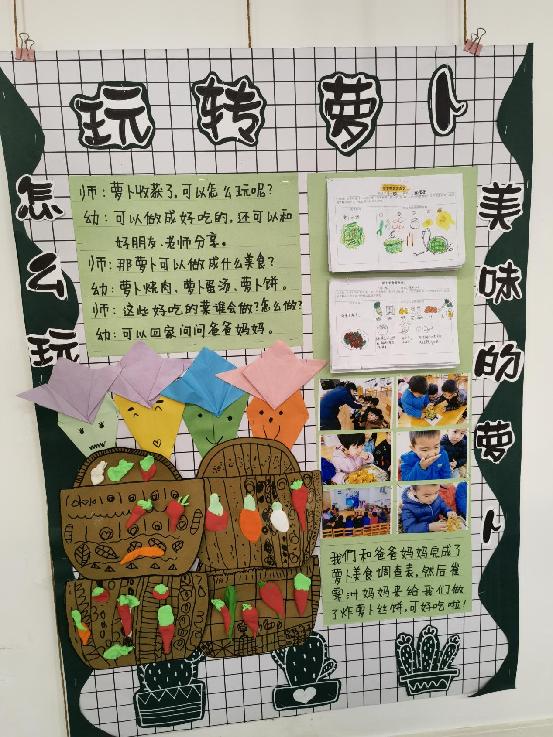 玩转萝卜
怎么玩
师：萝卜收获了，可以怎么玩呢？
幼：可以做成好吃的，还可以和
好朋友、老师分享。
师：那萝卜可以做成什么美食？
幼：萝卜炖肉、萝卜蛋汤、萝卜饼。
师：这些好吃的菜谁会做？怎么做？
幼：可以回家问问爸爸妈妈。
美味的萝卜
我们和爸爸妈妈完成了
萝卜美食调查表，然后崔
妈妈
给我们做
了炸萝卜丝饼，可好吃啦！